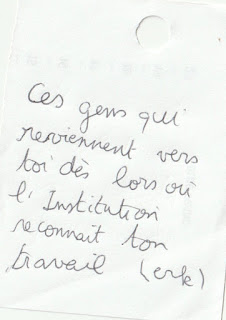 Ces gens qui
reviennent vers
toi dès lors où
l'Institution
reconnait ton
travail (erk)